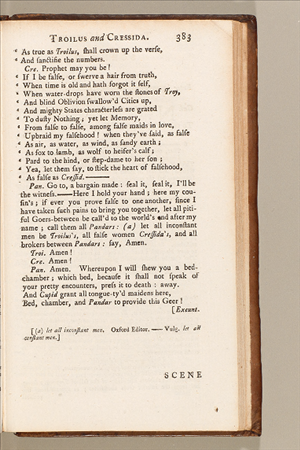 TROILUS and CRESSIDA. 383
" As true as Troilus, shall crown up the verse,
" And sanctifie the numbers.
Cre. Prophet may you be!
" If I be false, or swerve a hair from truth,
" When time is old and hath forgot itself,
" When water-drops have worn the stones of Troy,
" And blind Oblivion swallow'd Cities up,
" And mighty States characterless are grated
" To dusty Nothing; yet let Memory,
" From false to false, among false maids in love,
" Upbraid my falsehood! when they've said, as false
" As air, as water, as wind, as sandy earth;
" As fox to lamb, as wolf to heifer's calf;
" Pard to the hind, or step-dame to her son;
" Yea, let them say, to stick the heart of falsehood,
" As false as Cressid.——
Pan. Go to, a bargain made: seal it, seal it, I'll be
the witness.——Here I hold your hand; here my cou-
sin's; if ever you prove false to one another, since I
have taken such pains to bring you together, let all piti-
ful Goers-between be call'd to the world's end after my
name; call them all Pandars: (a) let all inconstant
men be Troilus's, all false women Cressida's, and all
brokers between Pandars: say, Amen.
Troi. Amen!
Cre. Amen!
Pan. Amen. Whereupon I will shew you a bed-
chamber; which bed, because it shall not speak of
your pretty encounters, press it to death: away.
And Cupid grant all tongue-ty'd maidens here,
Bed, chamber, and Pandar to provide this Geer!
[Exeunt.
[(a) let all inconstant men. Oxford Editor.—Vulg. let all
constant men.]
SCENE